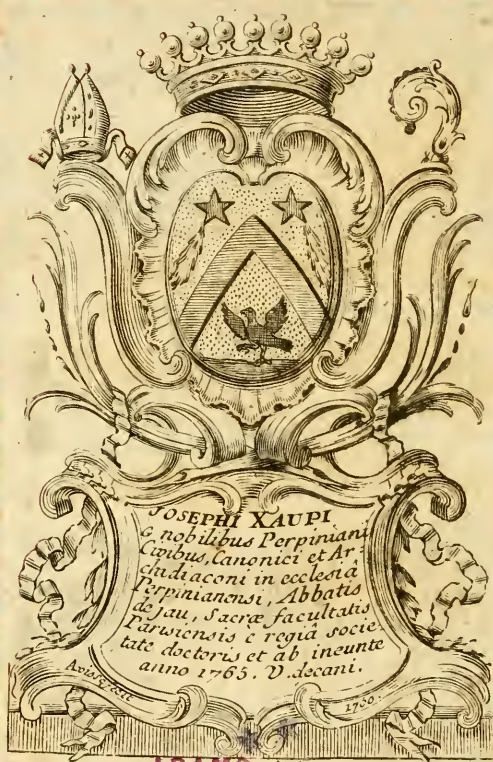 JOSEPHI XAUPI
G nobilibus Perpiniani
Civibus, Canonici et Ar=
chidiaconi in ecclesiâ
Perpinianensi, Abbatis
de Jau, Sacræ facultatis
Parisiensis è regiâ socie
tate doctoris et ab ineunte
anno 1765. V. decani.
1760.